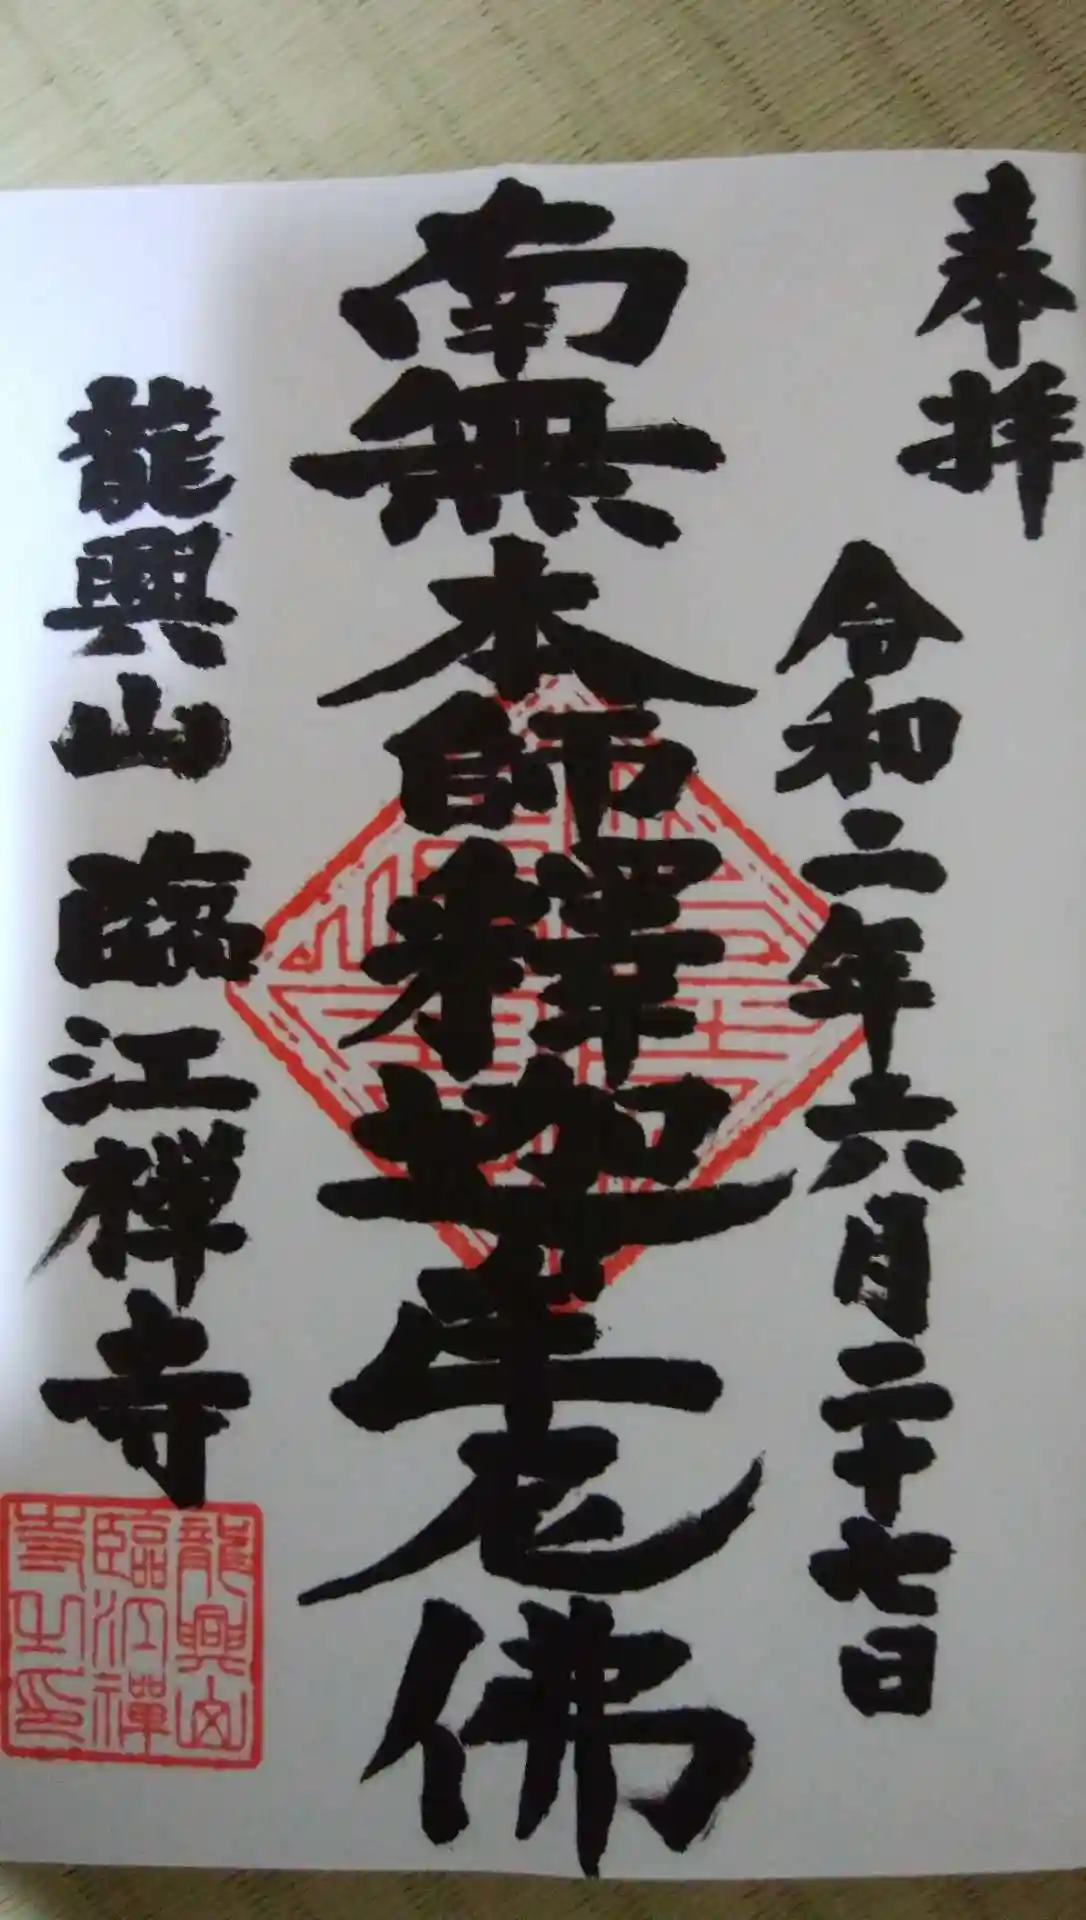 奉拝
令和二年六月二十七日
南無本師釋迦牟尼佛
龍興山 臨江禅寺
龍興山
臨江禪
寺之印